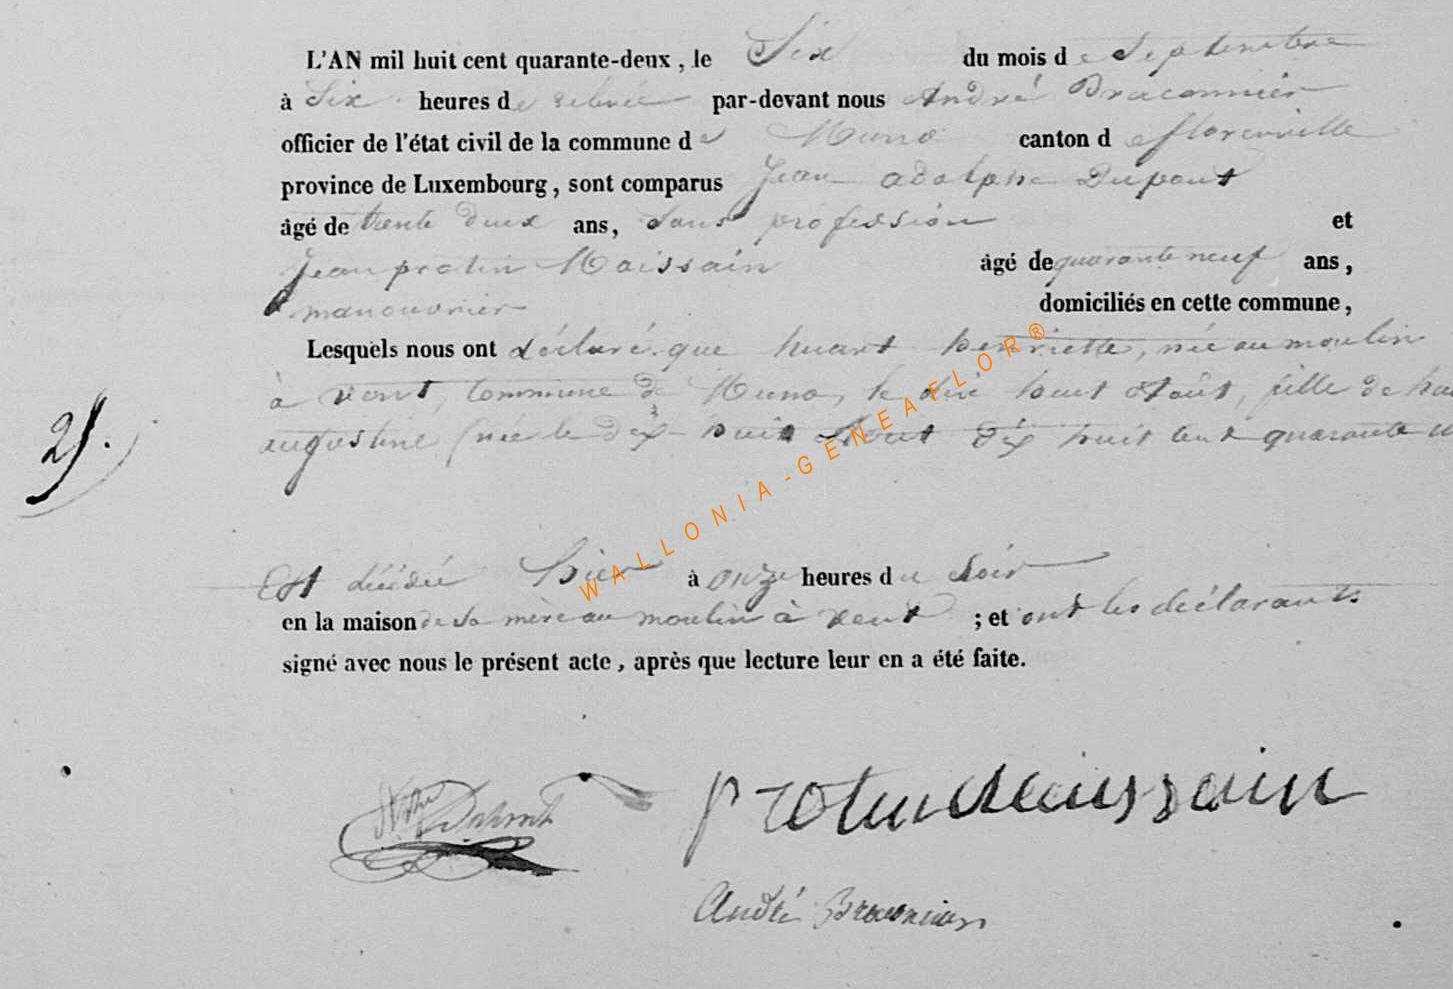 L'AN mil huit cent quarante-deux, le Six du mois de Septembre
à Six heures de relevée par-devant nous André Braconnier
officier de l'état civil de la commune de Muno canton de florenville
province de Luxembourg, sont comparus Jean adolphe Dupont
âgé de trente deux ans, Sans profession et
Jean protin Maissain âgé de quarante neuf ans,
manouvrier domiciliés en cette commune,
Lesquels nous ont déclaré que huart henriette, née au moulin
à vent, Commune de Muno, le dix huit Août, fille de
augustine (née le dix-huit Aout dix huit cent quarante
25.
Est décédée hier à onze heures du Soir
en la maison de sa mère au moulin à vent ; et ont les déclarants
signé avec nous le présent acte, après que lecture leur en a été faite.
Dupont
protin Maissain
André Braconnier
WALLONIA-GENEAFLOR®